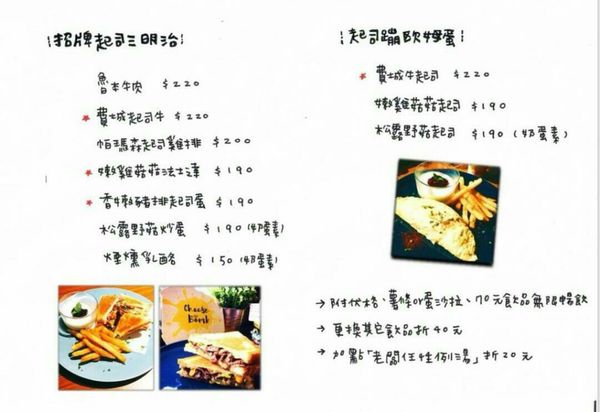 招牌起司三明治
魯本牛肉 $220
★ 費城起司牛 $220
帕瑪森起司雞排 $200
★ 嫩雞菇菇法士達 $190
★ 香嫩豬排起司蛋 $190
松露野菇炒蛋 $190 (奶蛋素)
煙燻乳酪 $150 (奶蛋素)
Cheese Bomb
起司蹦歐姆蛋
★ 費城牛起司 $220
嫩雞菇菇起司 $190
松露野菇起司 $190 (奶蛋素)
→ 附优格、薯條or蛋沙拉、70元飲品無限暢飲
→ 更換其它飲品折40元
→ 加點「老闆任性例湯」折20元